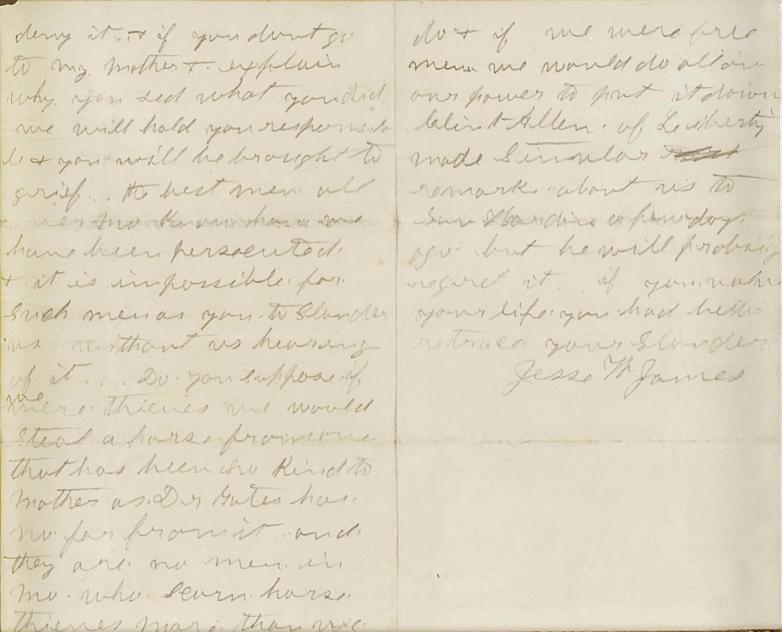 deny it. & if you dont go
to my mother & explain
why you sed what you did
we will hold you responsib
le & you will be brought to
grief. the best men all
over mo Know how we
have been persecuted.
& it is impossible for
Such men as you to Slander
us without us hearing
of it. Do you Suppose if
we were thieves we would
Steal a horse from one
that has been so Kind to
mother as Dr Yates has.
no far from it. and
they are no men in
mo. who Scorn horse
thieves more than we
do & if we were free
men we would do all in
our power to put it down
Clint Allen. of Liberty
made Simular
remarks about us to
Sam a few days
ago. but he will probaly
regret it. if you value
your life you had better
retract your Slander
Jesse W James